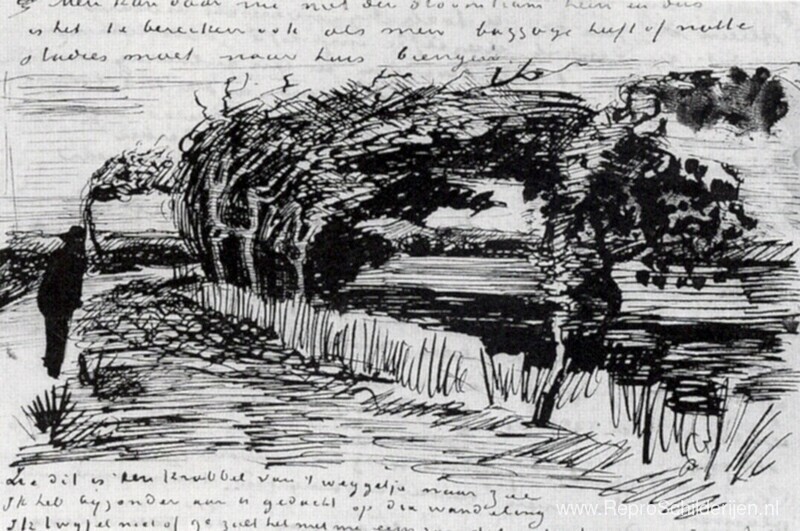 Men kan daar me met den stoomtram heen en dus
is het te bereiken ook als men baggage heeft of natte
studies moet naar huis brengen.
Zie dit is een krabbel van 't weggetje naar zee
Ik heb byzonder aan U gedacht op die wandeling
Ik twyfel niet of ge zult het met me eens
www.ReproSchilderijen.nl